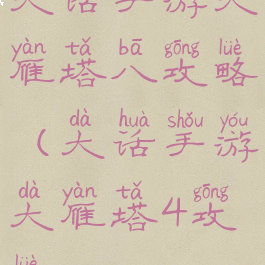 大话手游大
yàn tǎ bā gōng lüè
雁塔八攻略
dà huà shǒu yóu
（大话手游
dà yàn tǎ gōng
大雁塔4攻
lüè